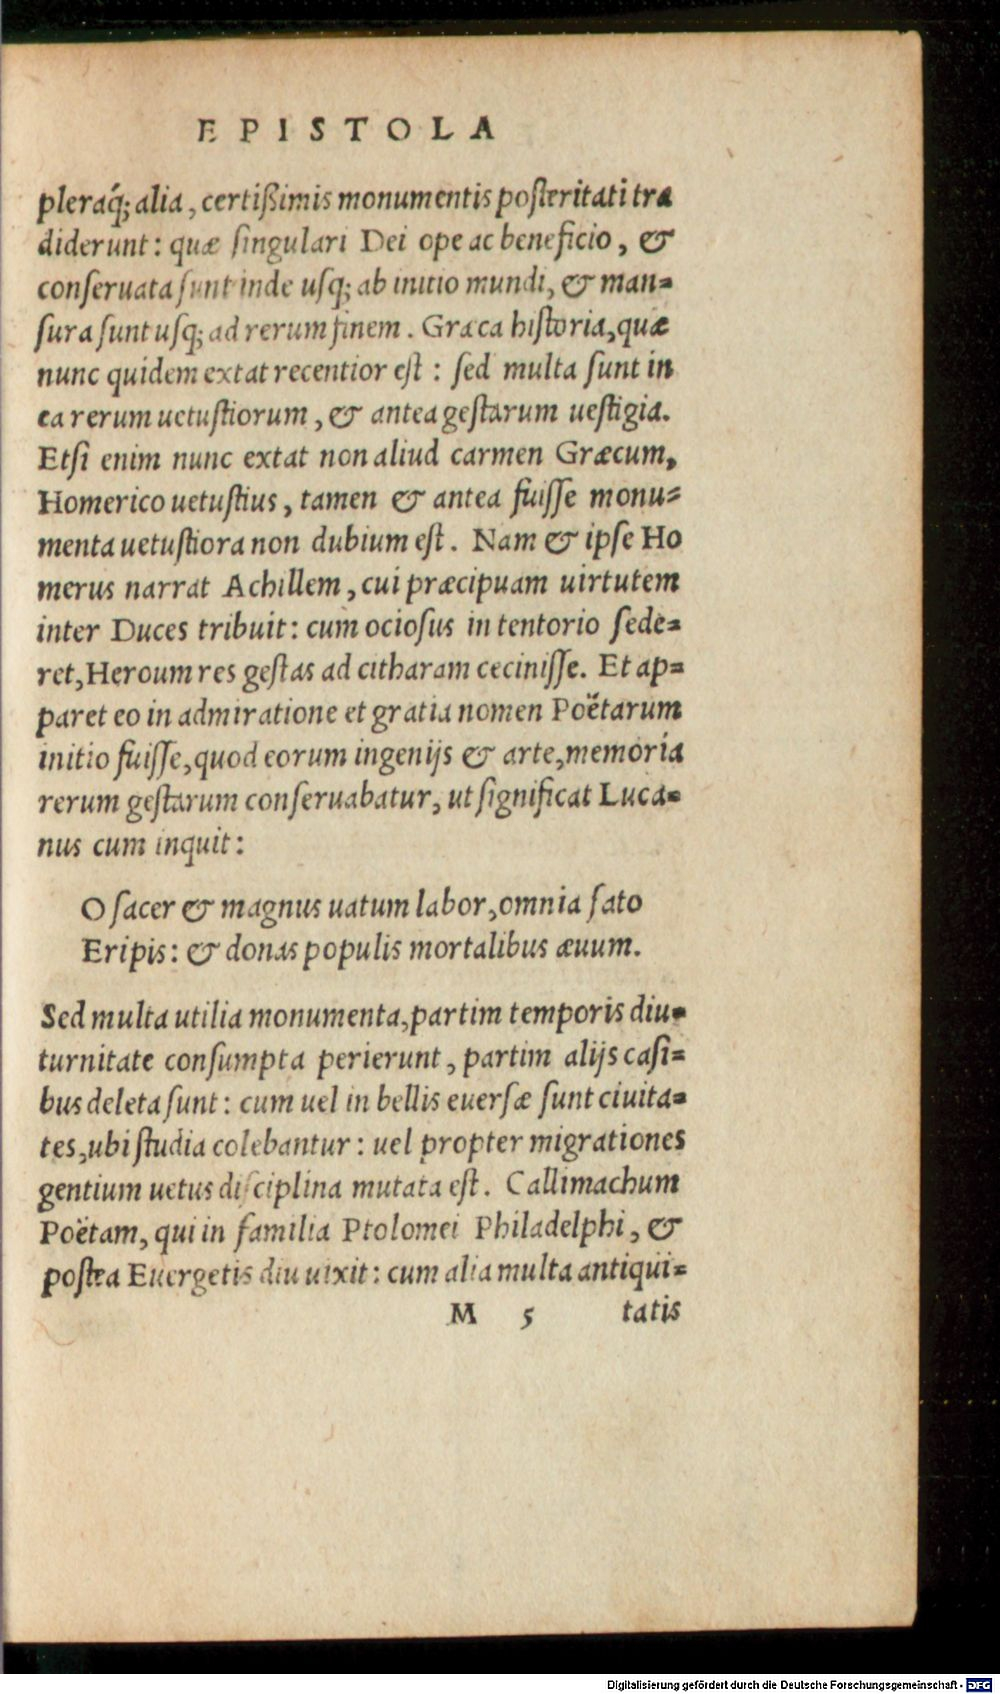 EPISTOLA
pleraq́; alia, certißimis monumentis posteritati tra
diderunt: quæ ſingulari Dei ope ac beneficio, &
conſeruata ſunt inde uſq; ab initio mundi, & man-
ſura ſunt uſq; ad rerum finem. Græca hiſtoria, quæ
nunc quidem extat recentior eſt: ſed multa ſunt in
ea rerum uetuſtiorum, & antea geſtarum ueſtigia.
Etſi enim nunc extat non aliud carmen Græcum,
Homerico uetuſtius, tamen & antea fuiſſe monu-
menta uetuſtiora non dubium eſt. Nam & ipſe Ho
merus narrat Achillem, cui præcipuam uirtutem
inter Duces tribuit: cum ocioſus in tentorio ſede-
ret, Heroum res geſtas ad citharam ceciniſſe. Et ap-
paret eo in admiratione et gratia nomen Poëtarum
initio fuiſſe, quod eorum ingenijs & arte, memoria
rerum geſtarum conſeruabatur, ut ſignificat Luca-
nus cum inquit:
O ſacer & magnus uatum labor, omnia fato
Eripis: & donas populis mortalibus æuum.
Sed multa utilia monumenta, partim temporis diu-
turnitate conſumpta perierunt, partim alijs caſi-
bus deleta ſunt: cum uel in bellis euerſæ ſunt ciuita-
tes, ubi ſtudia colebantur: uel propter migrationes
gentium uetus diſciplina mutata eſt. Callimachum
Poëtam, qui in familia Ptolomei Philadelphi, &
poſtea Euergetis diu uixit: cum alia multa antiqui-
M 5 tatis
Digitalisierung gefördert durch die Deutsche Forschungsgemeinschaft - DFG